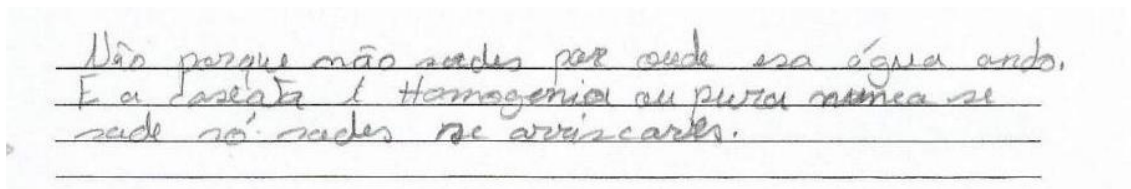 Não porque não sades por onde esa água anda.
E a cascata é Homogenia ou pura nunca se
sade só sades se arriscares.